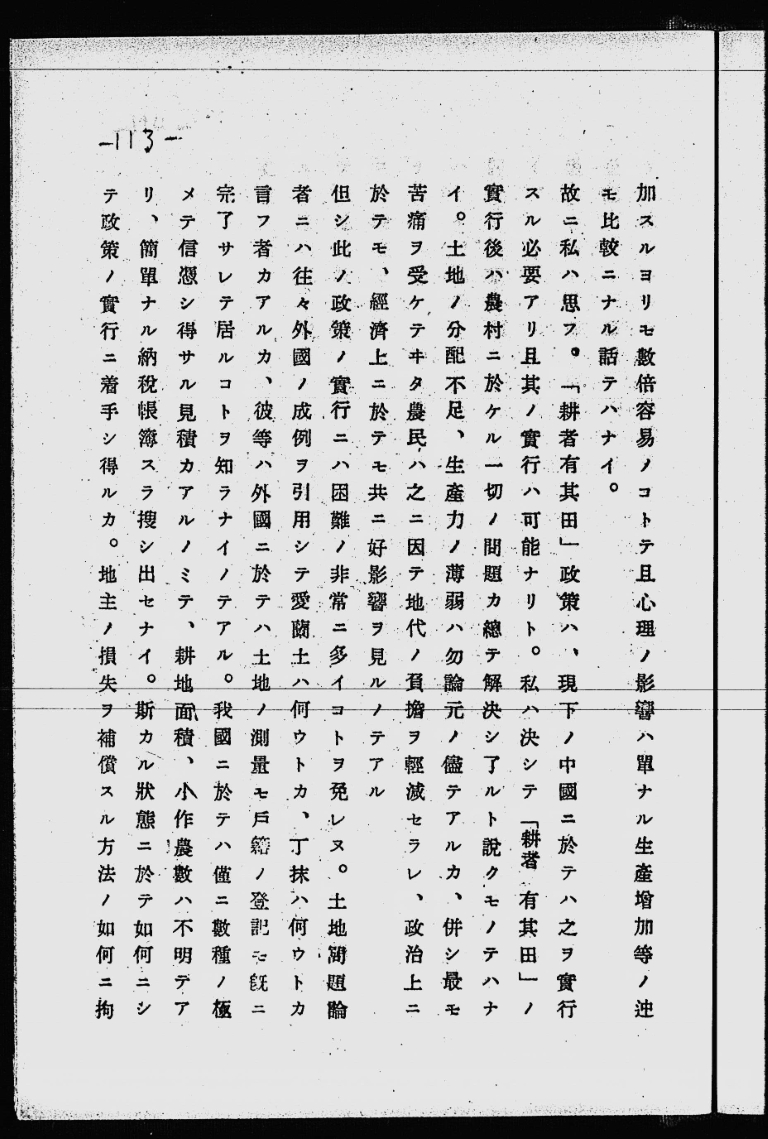 -113-
加スルヨリモ數倍容易ノコトテ且心理ノ影響ハ單ナル生產增加等ノ迚
モ比較ニナル話テハナイ。
故ニ私ハ思フ。「耕者有其田」政策ハ、現下ノ中國ニ於テハ之ヲ實行
スル必要アリ且其ノ實行ハ可能ナリト。私ハ決シテ「耕者有其田」ノ
實行後ハ農村ニ於ケル一切ノ問題カ總テ解決シ了ルト說クモノテハナ
イ。土地ノ分配不足、生產力ノ薄弱ハ勿論元ノ儘テアルカ、併シ最モ
苦痛ヲ受ケテヰタ農民ハ之ニ因テ地代ノ負擔ヲ輕減セラレ、政治上ニ
於テモ、經濟上ニ於テモ共ニ好影響ヲ見ルノテアル
但シ此ノ政策ノ實行ニハ困難ノ非常ニ多イコトヲ免レヌ。土地問題論
者ニハ往々外國ノ成例ヲ引用シテ愛蘭土ハ何ウトカ、丁抹ハ何ウトカ
言フ者カアルカ、彼等ハ外國ニ於テハ土地ノ測量モ戶籍ノ登記モ既ニ
完了サレテ居ルコトヲ知ラナイノテアル。我國ニ於テハ僅ニ數種ノ極
メテ信憑シ得サル見積カアルノミテ、耕地面積、小作農數ハ不明デア
リ、簡單ナル納稅帳簿スラ搜シ出セナイ。斯カル狀態ニ於テ如何ニシ
テ政策ノ實行ニ着手シ得ルカ。地主ノ損失ヲ補償スル方法ノ如何ニ拘